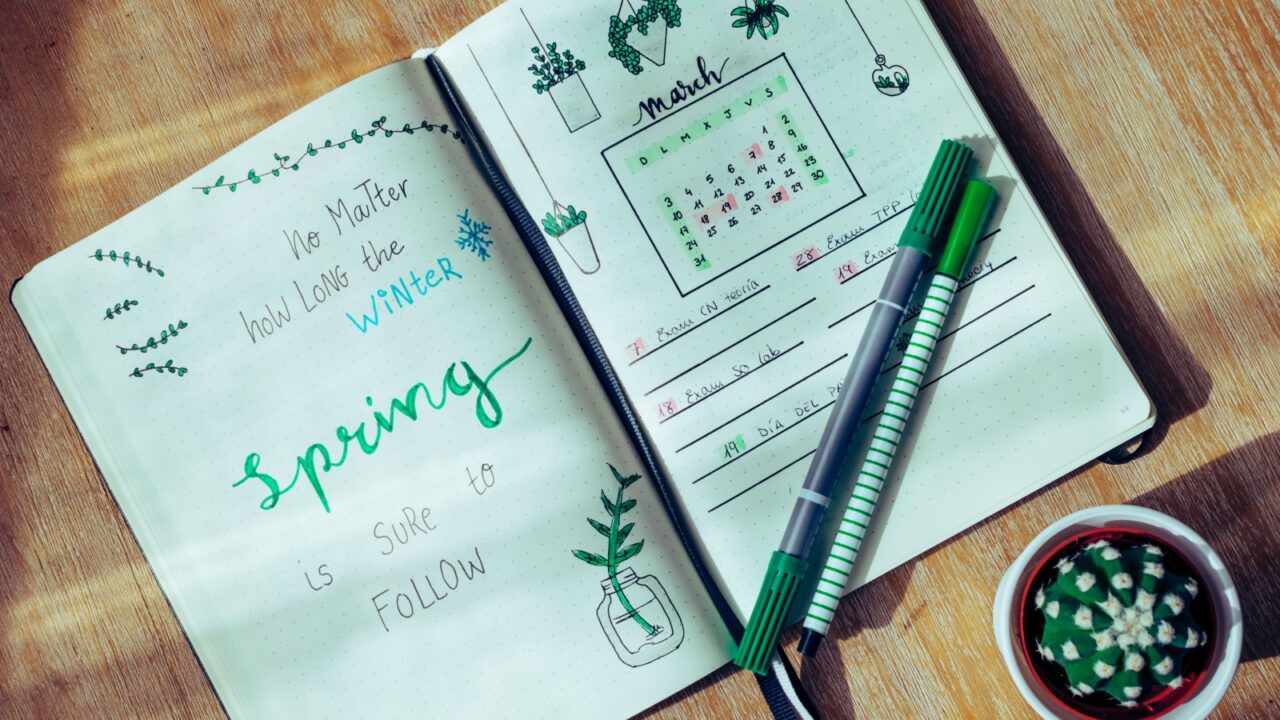 No MaTTer
how LoNG the
WiNteR
Spring
is SuRe to
FoLLOW
march
D L M X J V S
1 2
3 4 5 6 7 8 9
10 11 12 13 14 15 16
17 18 19 20 21 22 23
24 25 26 27 28 29 30
31
7 Exam CN teoría
18 Exam SO lab
19 DÍA DEL
28 Exam TPP
19 Exam